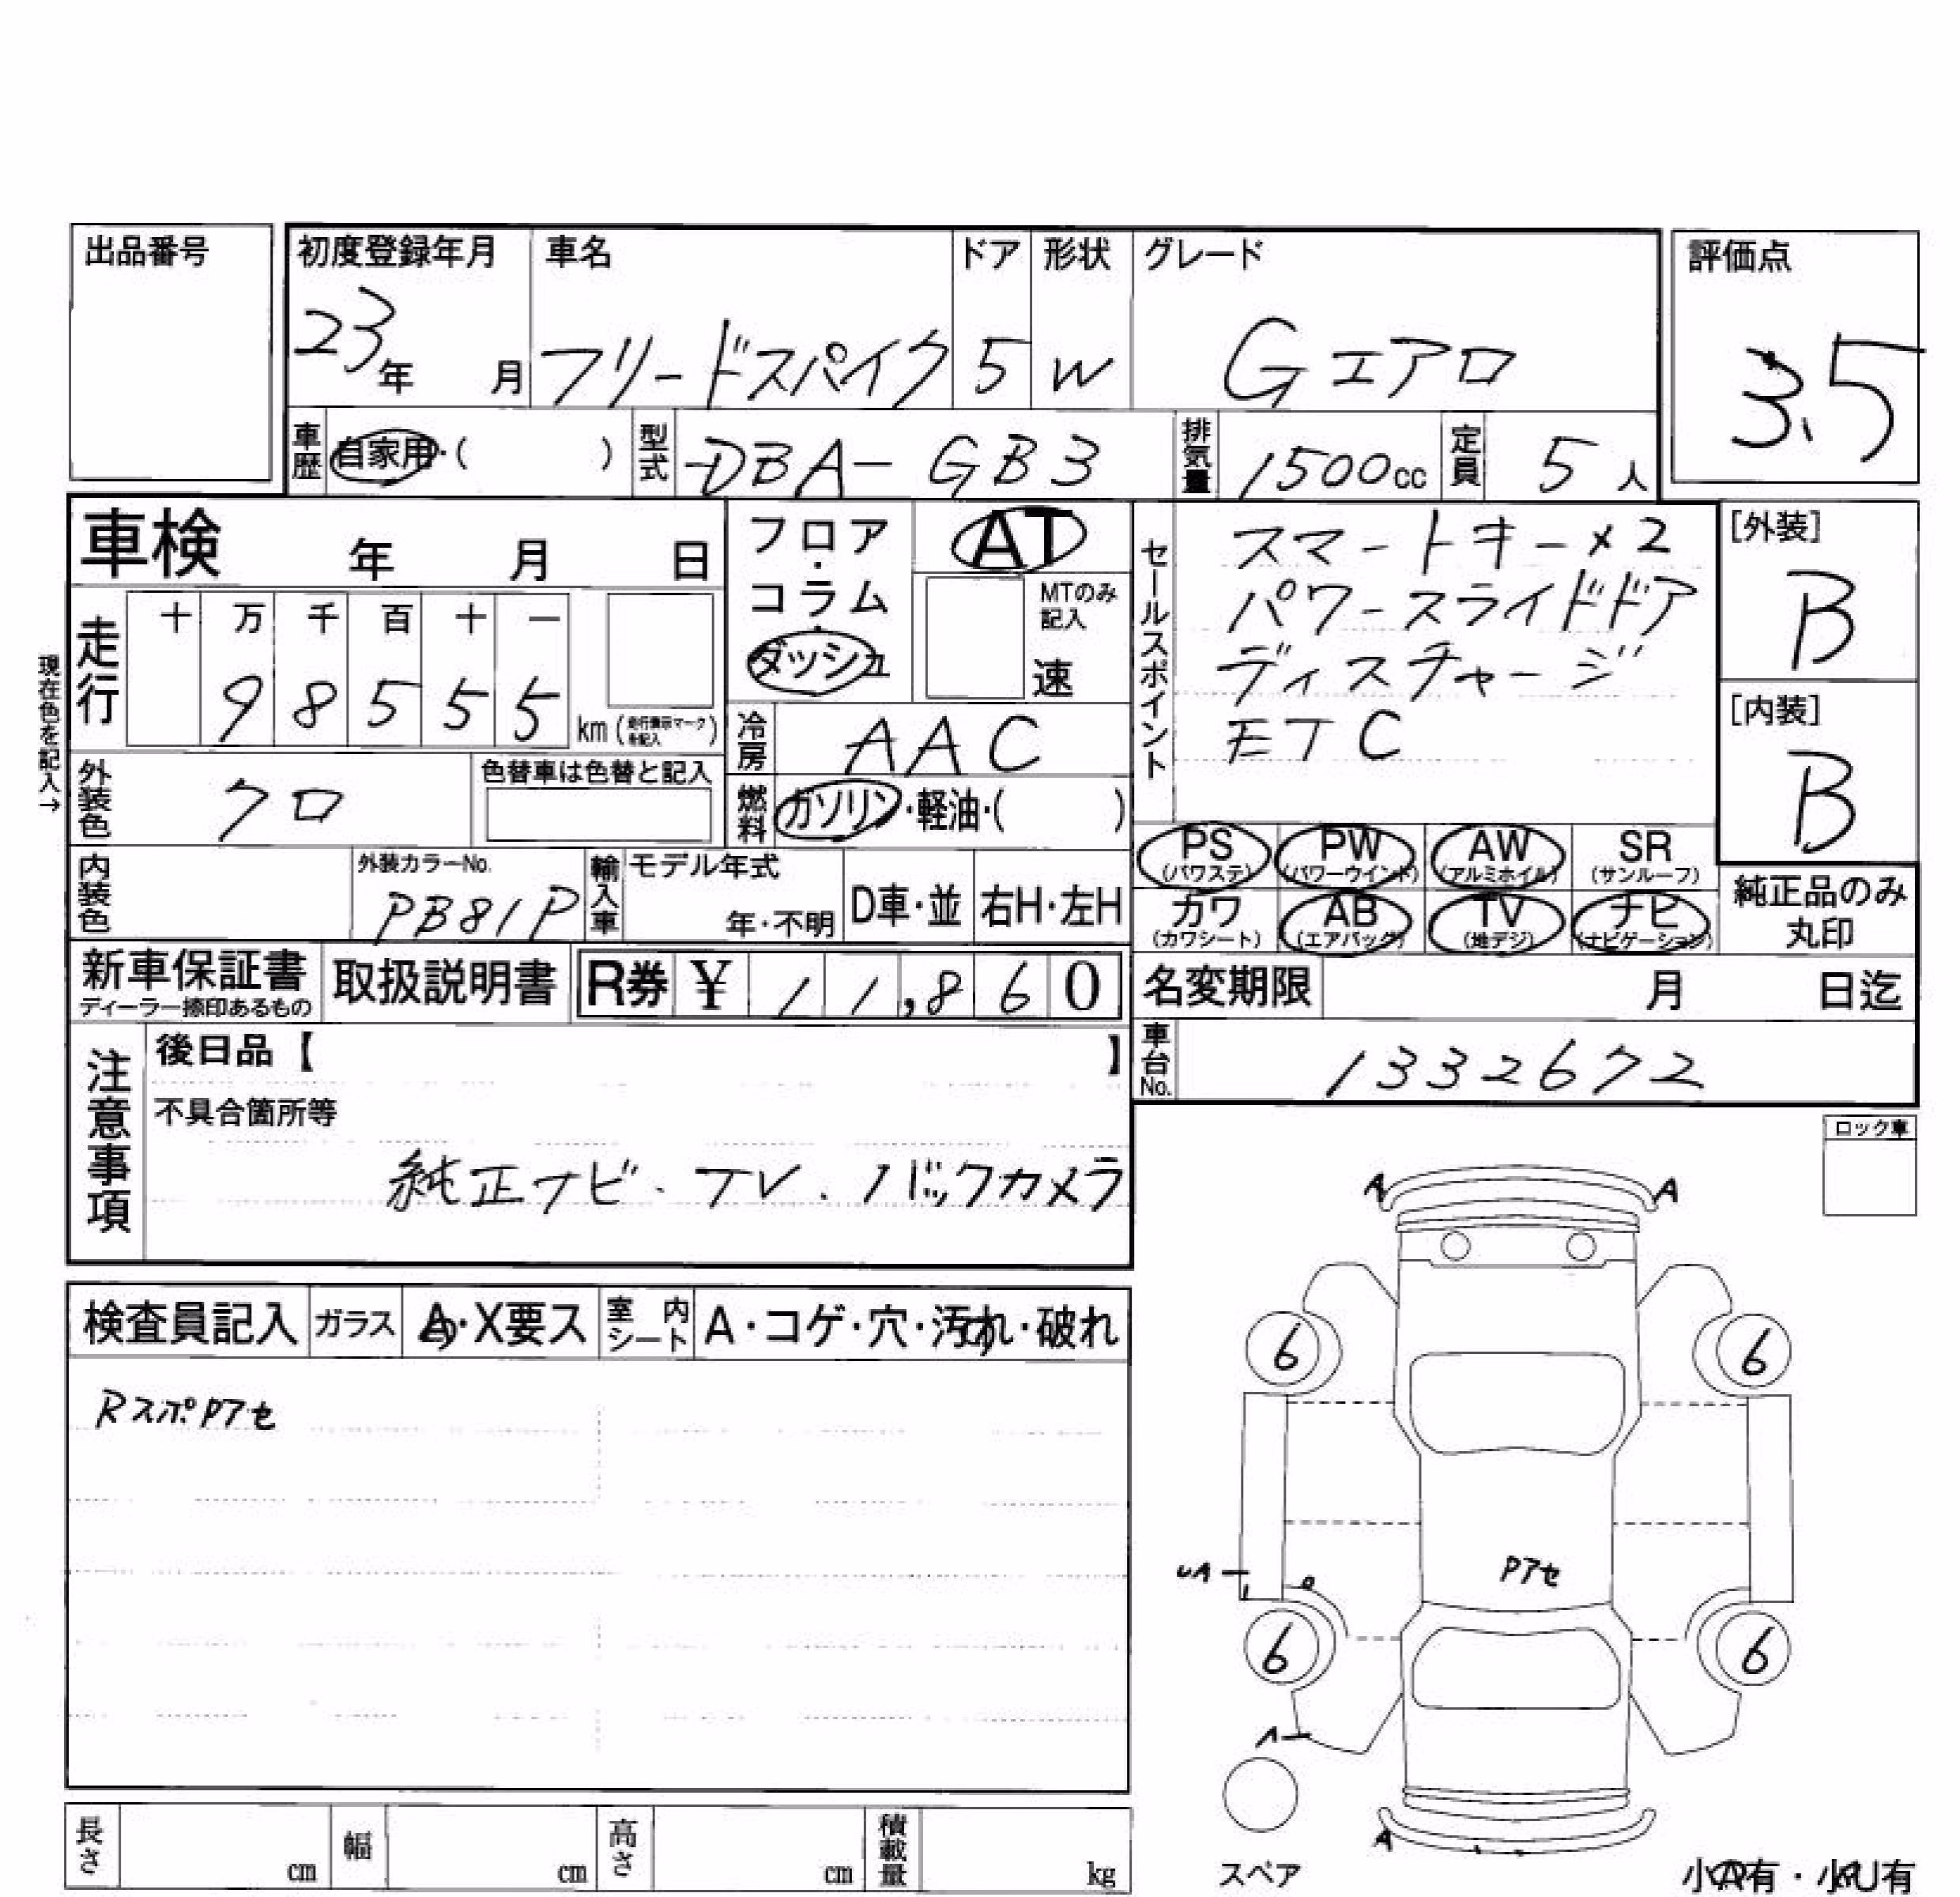 出品番号
初度登録年月 車名 ドア 形状 グレード 評価点
23年 月 フリードスパイク 5 W Gエアロ 3.5
車歴 自家用・( ) 型式 DBA-GB3 排気量 1500cc 定員 5人
車検 年 月 日
フロア・コラム・ダッシュ
AT
MTのみ記入
速
セールスポイント
スマートキー×2
パワースライドドア
ディスチャージ
ETC
[外装]
B
[内装]
B
現在色を記入→
走行 十 万 千 百 十 一
98555 km (走行表示マークを記入)
冷房 AAC
外装色 クロ 色替車は色替と記入
燃料 ガソリン・軽油・( )
PS (パワステ) PW (パワーウインド) AW (アルミホイル) SR (サンルーフ)
カワ (カワシート) AB (エアバック) TV (地デジ) ナビ (ナビゲーション)
純正品のみ丸印
内装色 外装カラーNo. PB81P 輸入車 モデル年式 年・不明 D車・並 右H・左H
新車保証書 ディーラー捺印あるもの 取扱説明書 R券 ¥ 11,860
名変期限 月 日迄
車台No. 1332672
注意事項
後日品【 】
不具合箇所等
純正ナビ・TV・バックカメラ
ロック車
検査員記入 ガラス A・X要ス 室内シート A・コゲ・穴・汚れ・破れ
RスポPアセ
A A
6 6
UA
Pアセ
6 6
A
A
スペア
長さ cm 幅 cm 高さ cm 積載量 kg
小A有・小U有